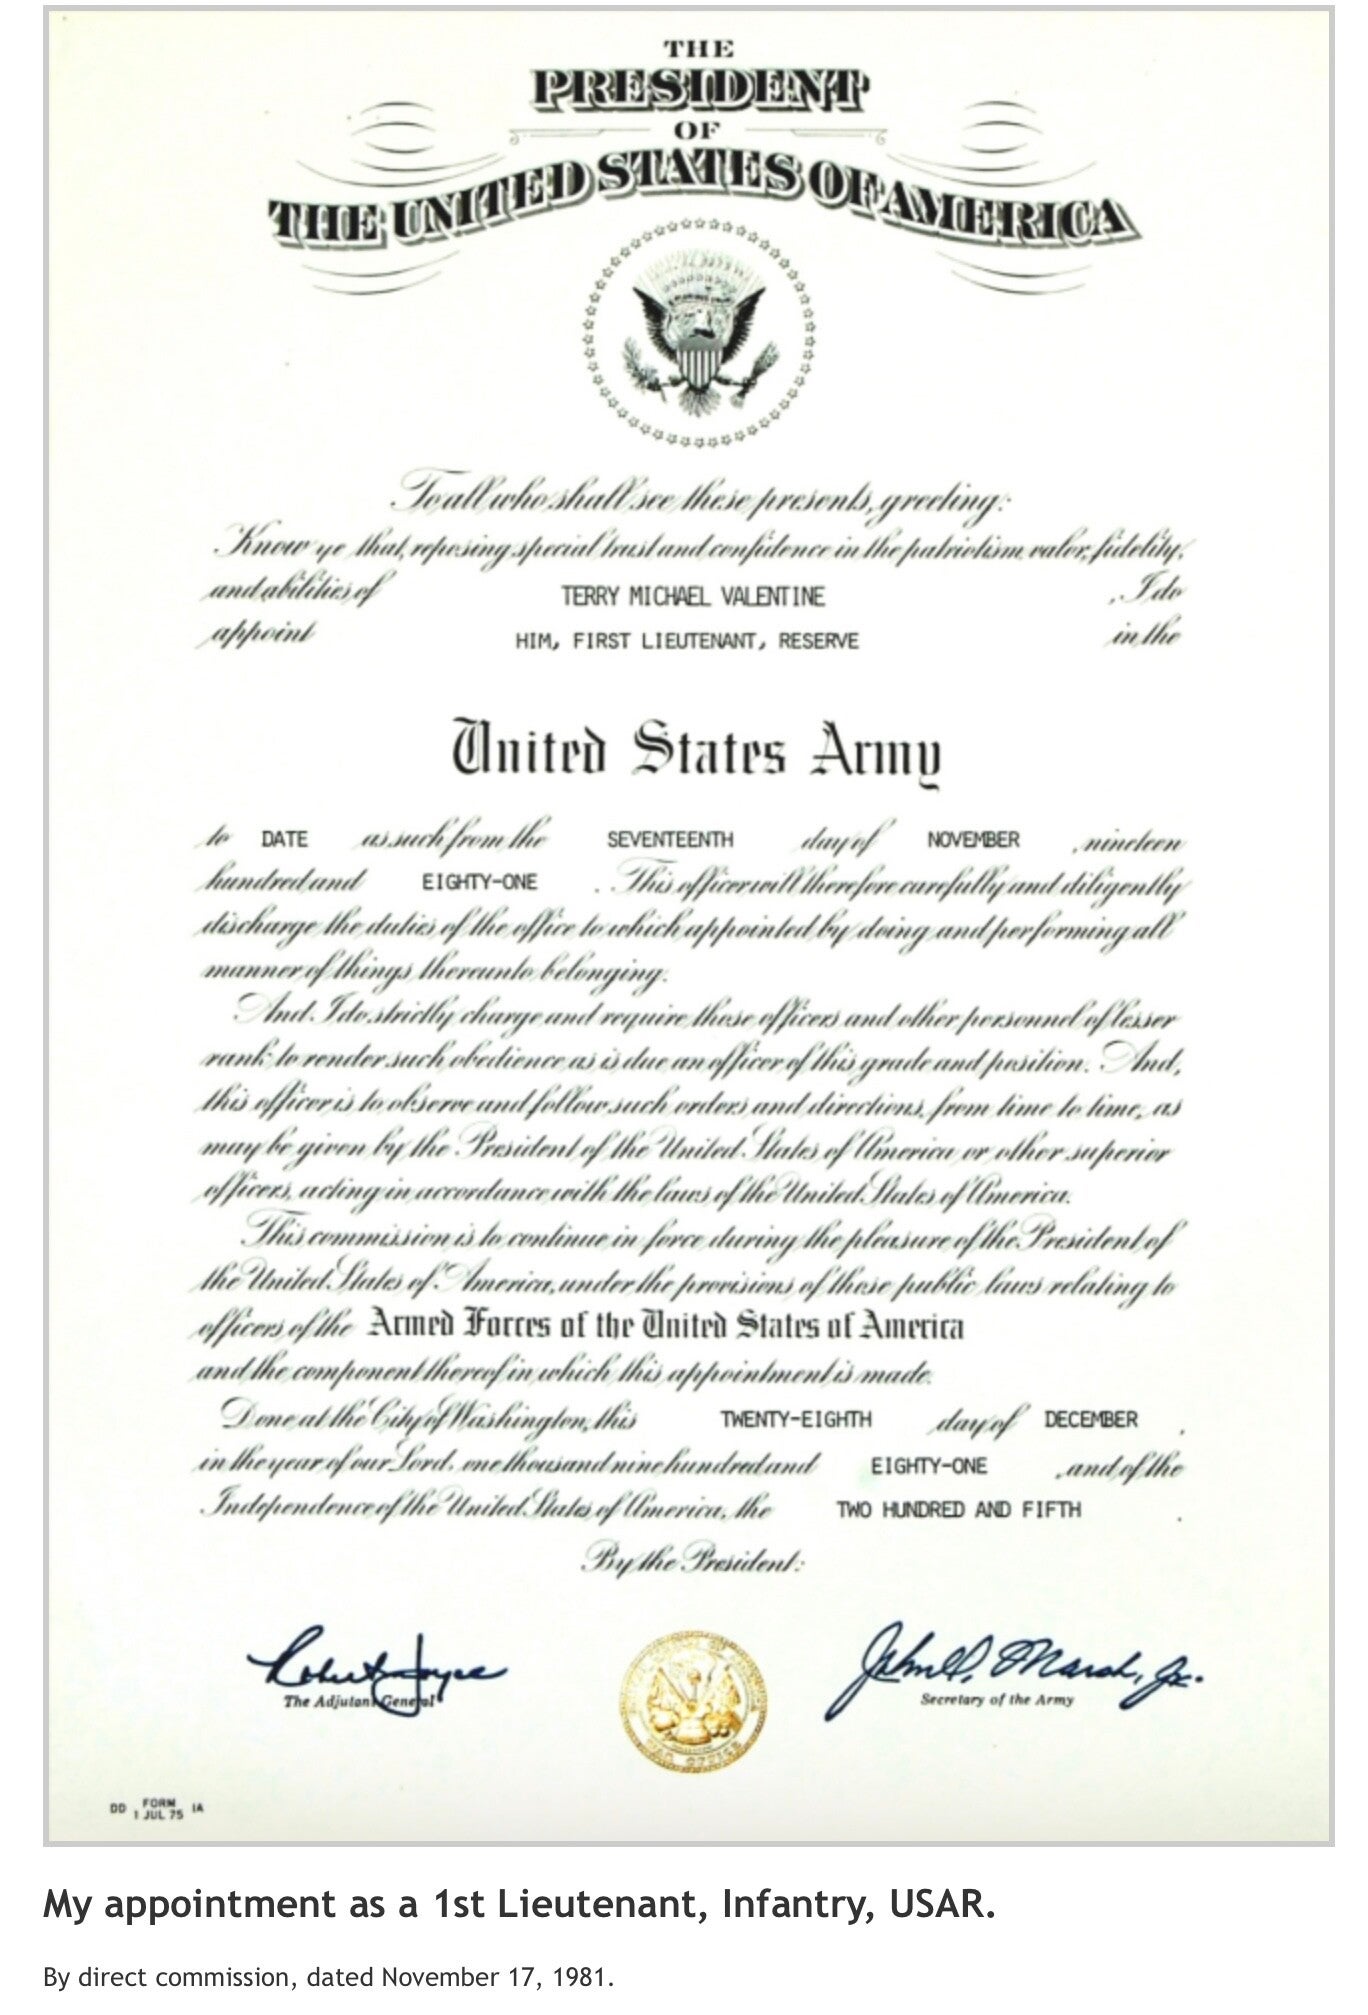 THE
PRESIDENT
OF
THE UNITED STATES OF AMERICA
To all who shall see these presents, greeting:
Know ye that, reposing special trust and confidence in the patriotism, valor, fidelity,
and abilities of TERRY MICHAEL VALENTINE , I do
appoint HIM, FIRST LIEUTENANT, RESERVE in the
United States Army
to DATE as such from the SEVENTEENTH day of NOVEMBER , nineteen
hundred and EIGHTY-ONE . This officer will therefore carefully and diligently
discharge the duties of the office to which appointed by doing and performing all
manner of things thereunto belonging.
And I do strictly charge and require those officers and other personnel of lesser
rank to render such obedience as is due an officer of this grade and position. And,
this officer is to observe and follow such orders and directions, from time to time, as
may be given by the President of the United States of America or other superior
officers, acting in accordance with the laws of the United States of America.
This commission is to continue in force during the pleasure of the President of
the United States of America, under the provisions of those public laws relating to
officers of the Armed Forces of the United States of America
and the component thereof in which this appointment is made.
Done at the City of Washington, this TWENTY-EIGHTH day of DECEMBER ,
in the year of our Lord, one thousand nine hundred and EIGHTY-ONE , and of the
Independence of the United States of America, the TWO HUNDRED AND FIFTH .
By the President:
Robert Joyce John O. Marsh, Jr.
The Adjutant General Secretary of the Army
WAR OFFICE
DD FORM 1 JUL 75 1A
My appointment as a 1st Lieutenant, Infantry, USAR.
By direct commission, dated November 17, 1981.